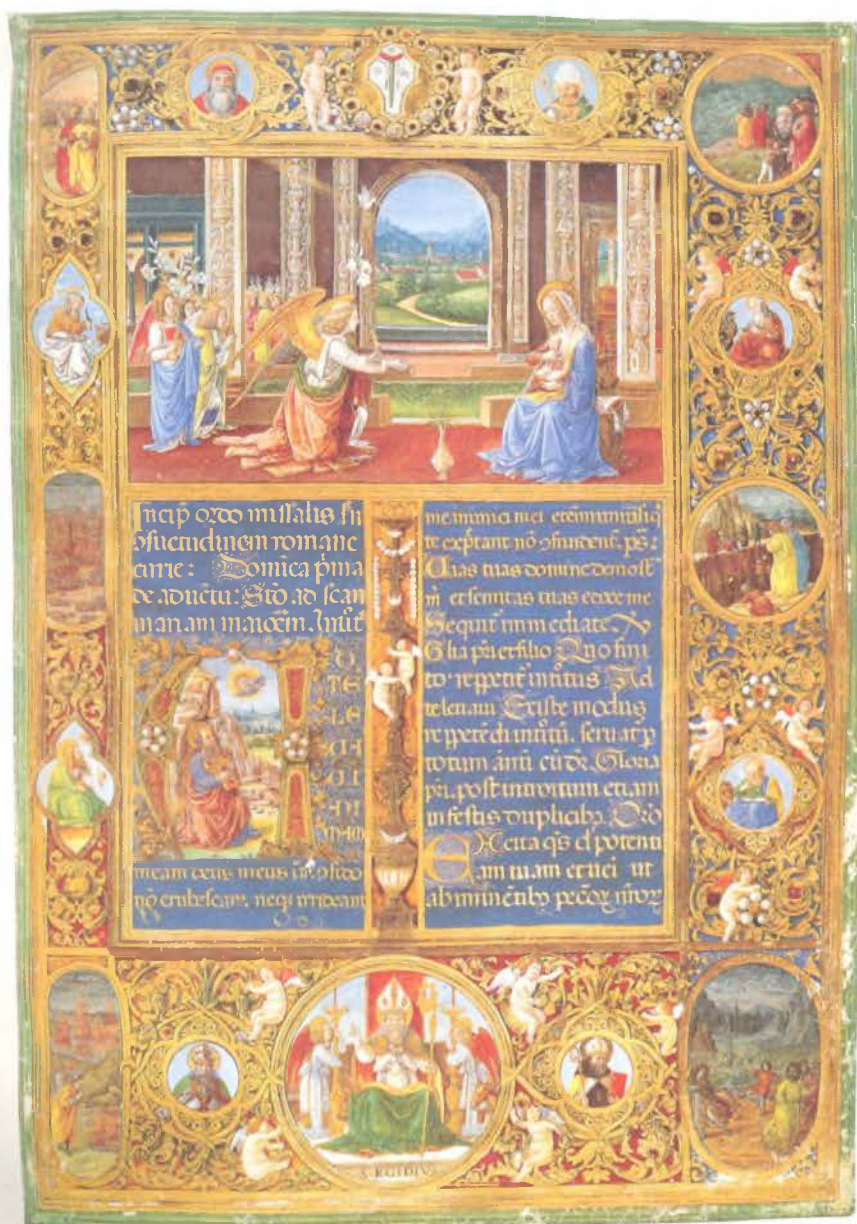 Incip ordo missalis sn
ꝯsuetudinem romane
curie: Domica pma
de aduetu: Sto ad scan
mariam maiorem. Introit
A
D
TE
LE
VA
VI
A
NI
MAM
meam deus meus
no erubescam. neqꝫ irrideant
me inimici mei etenim
te exptant no ꝯfundent. ps:
Uias tuas domine demost
m et semitas tuas edoce me
Sequit immediate
Glia pri et filio Quo fini
to repetit introitus Ad
te leuaui Et iste modus
repetedi introitu. seruat p
totum annu
pri. post introitum etiam
in festis duplicibꝫ. Oro
Excita qs potenti
am tuam et uei ut
ab imminetibꝫ peccoꝝ nroꝝ
S. EGIDIVS